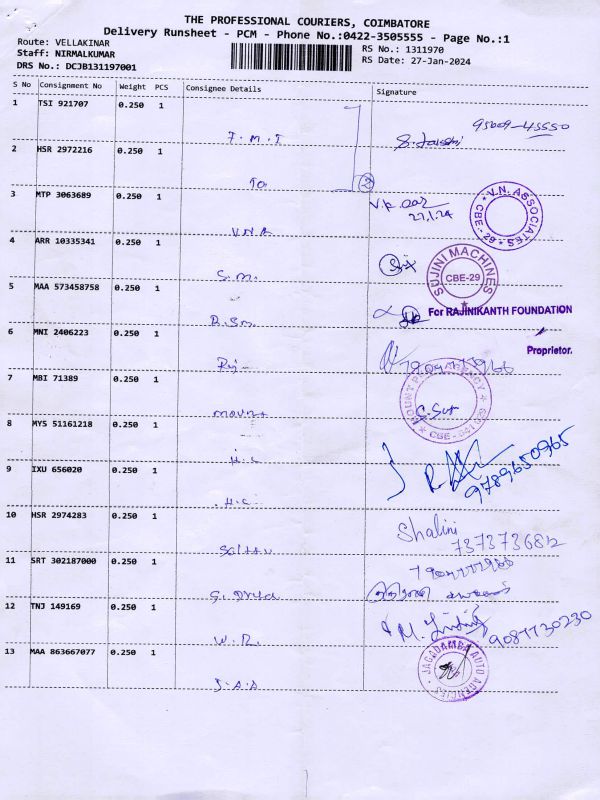 THE PROFESSIONAL COURIERS, COIMBATORE
Delivery Runsheet - PCM - Phone No.:0422-3505555 - Page No.:1
Route: VELLAKINAR
Staff: NIRMALKUMAR
DRS No.: DCJB131197001
RS No.: 1311970
RS Date: 27-Jan-2024
S No Consignment No Weight PCS Consignee Details Signature
1 TSI 921707 0.250 1
F.M.I
95009-45550
2 HSR 2972216 0.250 1
To
2
3 MTP 3063689 0.250 1
V.N.A
27.1.24
V.N. ASSOCIATES
CBE-29
4 ARR 10335341 0.250 1
S.M.
SUJINI MACHINES
CBE-29
5 MAA 573458758 0.250 1
R.Sm
For RAJINIKANTH FOUNDATION
Proprietor.
6 MNI 2406223 0.250 1
Raj
7 MBI 71389 0.250 1
Mount
AGENCY
8 MYS 51161218 0.250 1
H.C
9789650965
9 IXU 656020 0.250 1
H.C
10 HSR 2974283 0.250 1
Shalini
7373736812
11 SRT 302187000 0.250 1
12 TNJ 149169 0.250 1
W.R.
9087730230
13 MAA 863667077 0.250 1
J.A.A
JAGADAMBA AUTO AGENCIES